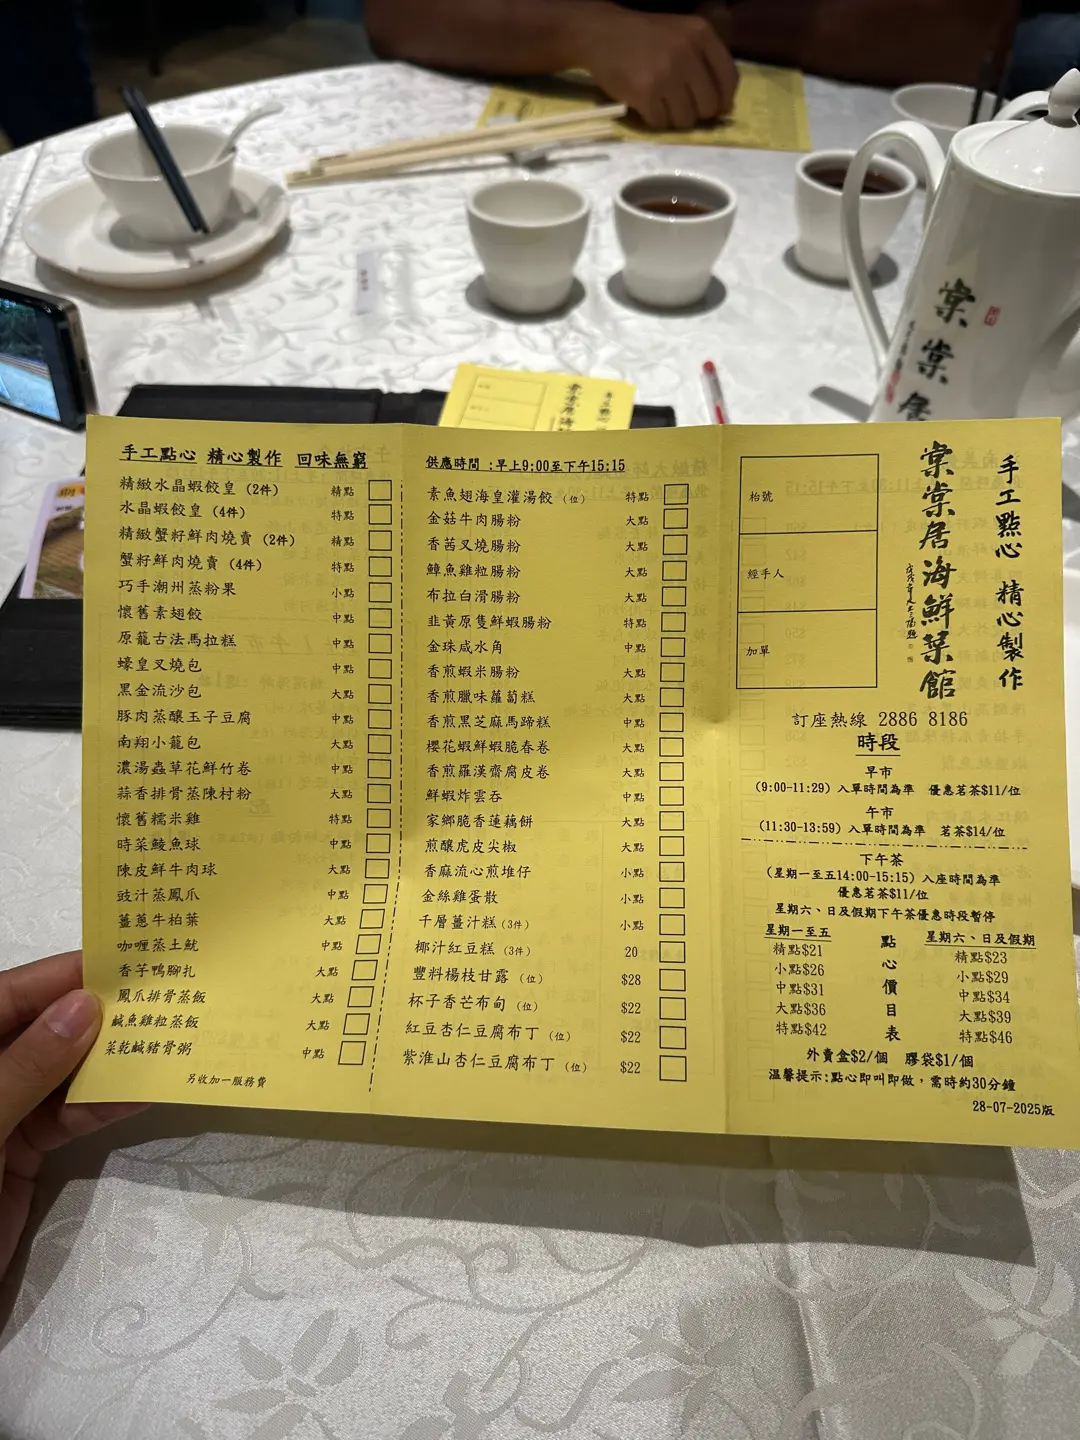 手工點心 精心製作 回味無窮
精緻水晶蝦餃皇 (2件) 精點
水晶蝦餃皇 (4件) 特點
精緻蟹籽鮮肉燒賣 (2件) 精點
蟹籽鮮肉燒賣 (4件) 特點
巧手潮州蒸粉果 小點
懷舊素翅餃 中點
原籠古法馬拉糕 中點
蠔皇叉燒包 中點
黑金流沙包 大點
豚肉蒸釀玉子豆腐 中點
南翔小籠包 大點
濃湯蟲草花鮮竹卷 中點
蒜香排骨蒸陳村粉 大點
懷舊糯米雞 特點
時菜鯪魚球 中點
陳皮鮮牛肉球 大點
豉汁蒸鳳爪 中點
薑蔥牛柏葉 大點
咖喱蒸土魷 中點
香芋鴨腳扎 大點
鳳爪排骨蒸飯 大點
鹹魚雞粒蒸飯 大點
菜乾鹹豬骨粥 中點
另收加一服務費
供應時間 :早上9:00至下午15:15
素魚翅海皇灌湯餃 (位) 特點
金菇牛肉腸粉 大點
香茜叉燒腸粉 大點
鱆魚雞粒腸粉 大點
布拉白滑腸粉 大點
韭黃原隻鮮蝦腸粉 特點
金珠咸水角 中點
香煎蝦米腸粉 大點
香煎臘味蘿蔔糕 大點
香煎黑芝麻馬蹄糕 中點
櫻花蝦鮮蝦脆春卷 大點
香煎羅漢齋腐皮卷 大點
鮮蝦炸雲吞 中點
家鄉脆香蓮藕餅 大點
煎釀虎皮尖椒 大點
香麻流心煎堆仔 小點
金絲雞蛋散 小點
千層薑汁糕 (3件) 小點
椰汁紅豆糕 (3件) 20
豐料楊枝甘露 (位) $28
杯子香芒布甸 (位) $22
紅豆杏仁豆腐布丁 (位) $22
紫淮山杏仁豆腐布丁 (位) $22
枱號
經手人
加單
手工點心 精心製作
棠棠居海鮮菜館
訂座熱線 2886 8186
時段
早市
(9:00-11:29) 入單時間為準 優惠茗茶$11/位
午市
(11:30-13:59) 入單時間為準 茗茶$14/位
下午茶
(星期一至五14:00-15:15) 入座時間為準
優惠茗茶$11/位
星期六、日及假期下午茶優惠時段暫停
點心價目表
星期一至五
精點$21
小點$26
中點$31
大點$36
特點$42
星期六、日及假期
精點$23
小點$29
中點$34
大點$39
特點$46
外賣盒$2/個 膠袋$1/個
溫馨提示:點心即叫即做，需時約30分鐘
28-07-2025版
棠棠居